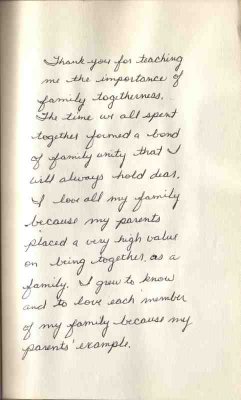 Thank you for teaching
me the importance of
family togetherness.
The time we all spent
together formed a bond
of family unity that I
will always hold dear.
I love all my family
because my parents
placed a very high value
on being together, as a
family. I grew to know
and to love each member
of my family because my
parents' example.